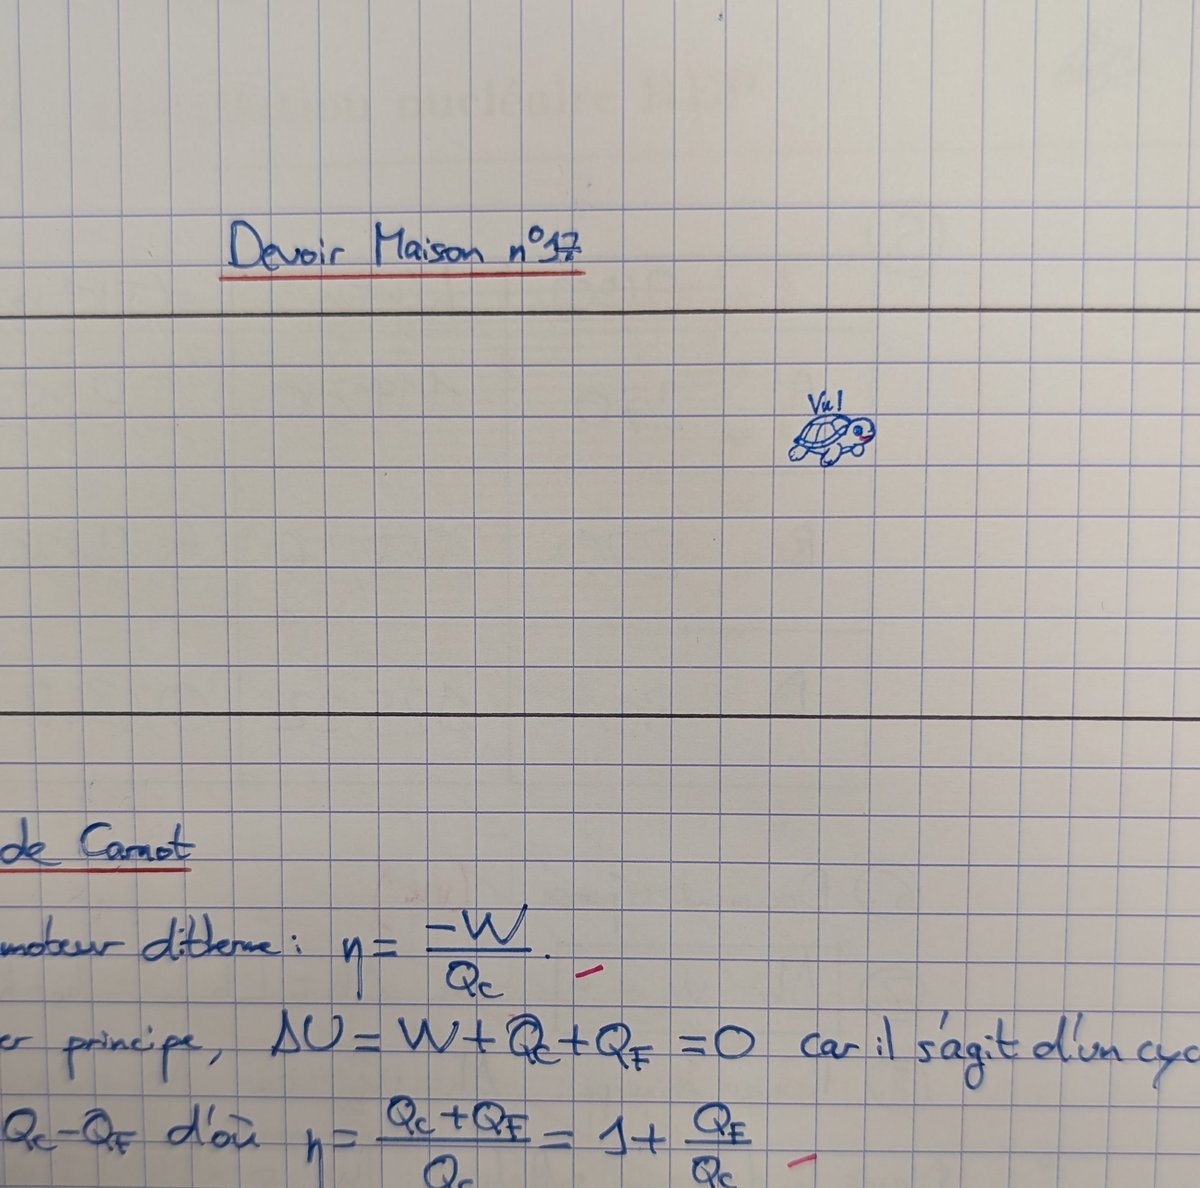 Devoir Maison n°17
Vu!
de Carnot
moteur ditherme: η = -W / Qc.
er principe, ΔU = W + Qc + QF = 0 car il s'agit d'un cyc
Qc - QF d'où η = Qc + QF / Qc = 1 + QF / Qc